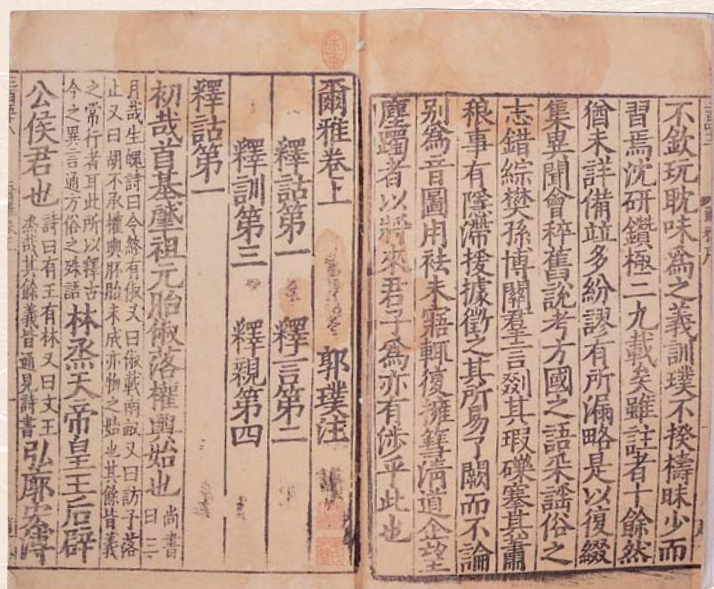 不欽玩耽味爲之義訓璞不揆檮昧少而
習焉沈研鑽極二九載矣雖註者十餘然
猶未詳備竝多紛謬有所漏略是以復綴
集異聞會稡舊說考方國之語采謡俗之
志錯綜樊孫博關羣言剟其瑕礫搴其蕭
稂事有隱滯援據徵之其所易了闕而不論
别爲音圖用祛未寤輒復擁篲清道企望
塵躅者以將來君子爲亦有涉乎此也
爾雅卷上 郭璞注
釋詁第一 釋言第二
釋訓第三 釋親第四
釋詁第一
初哉首基肈祖元胎俶落權輿始也 尚書曰三
月哉生魄詩曰令終有俶又曰俶載南畝又曰訪予落
止又曰胡不承權輿胚胎未成亦物之始也其餘皆義
之常行者耳此所以釋古今之異言通方俗之殊語 林烝天帝皇王后辟
公侯君也 詩曰有王有林又曰文王烝哉其餘義皆通見詩書 弘廓宏溥